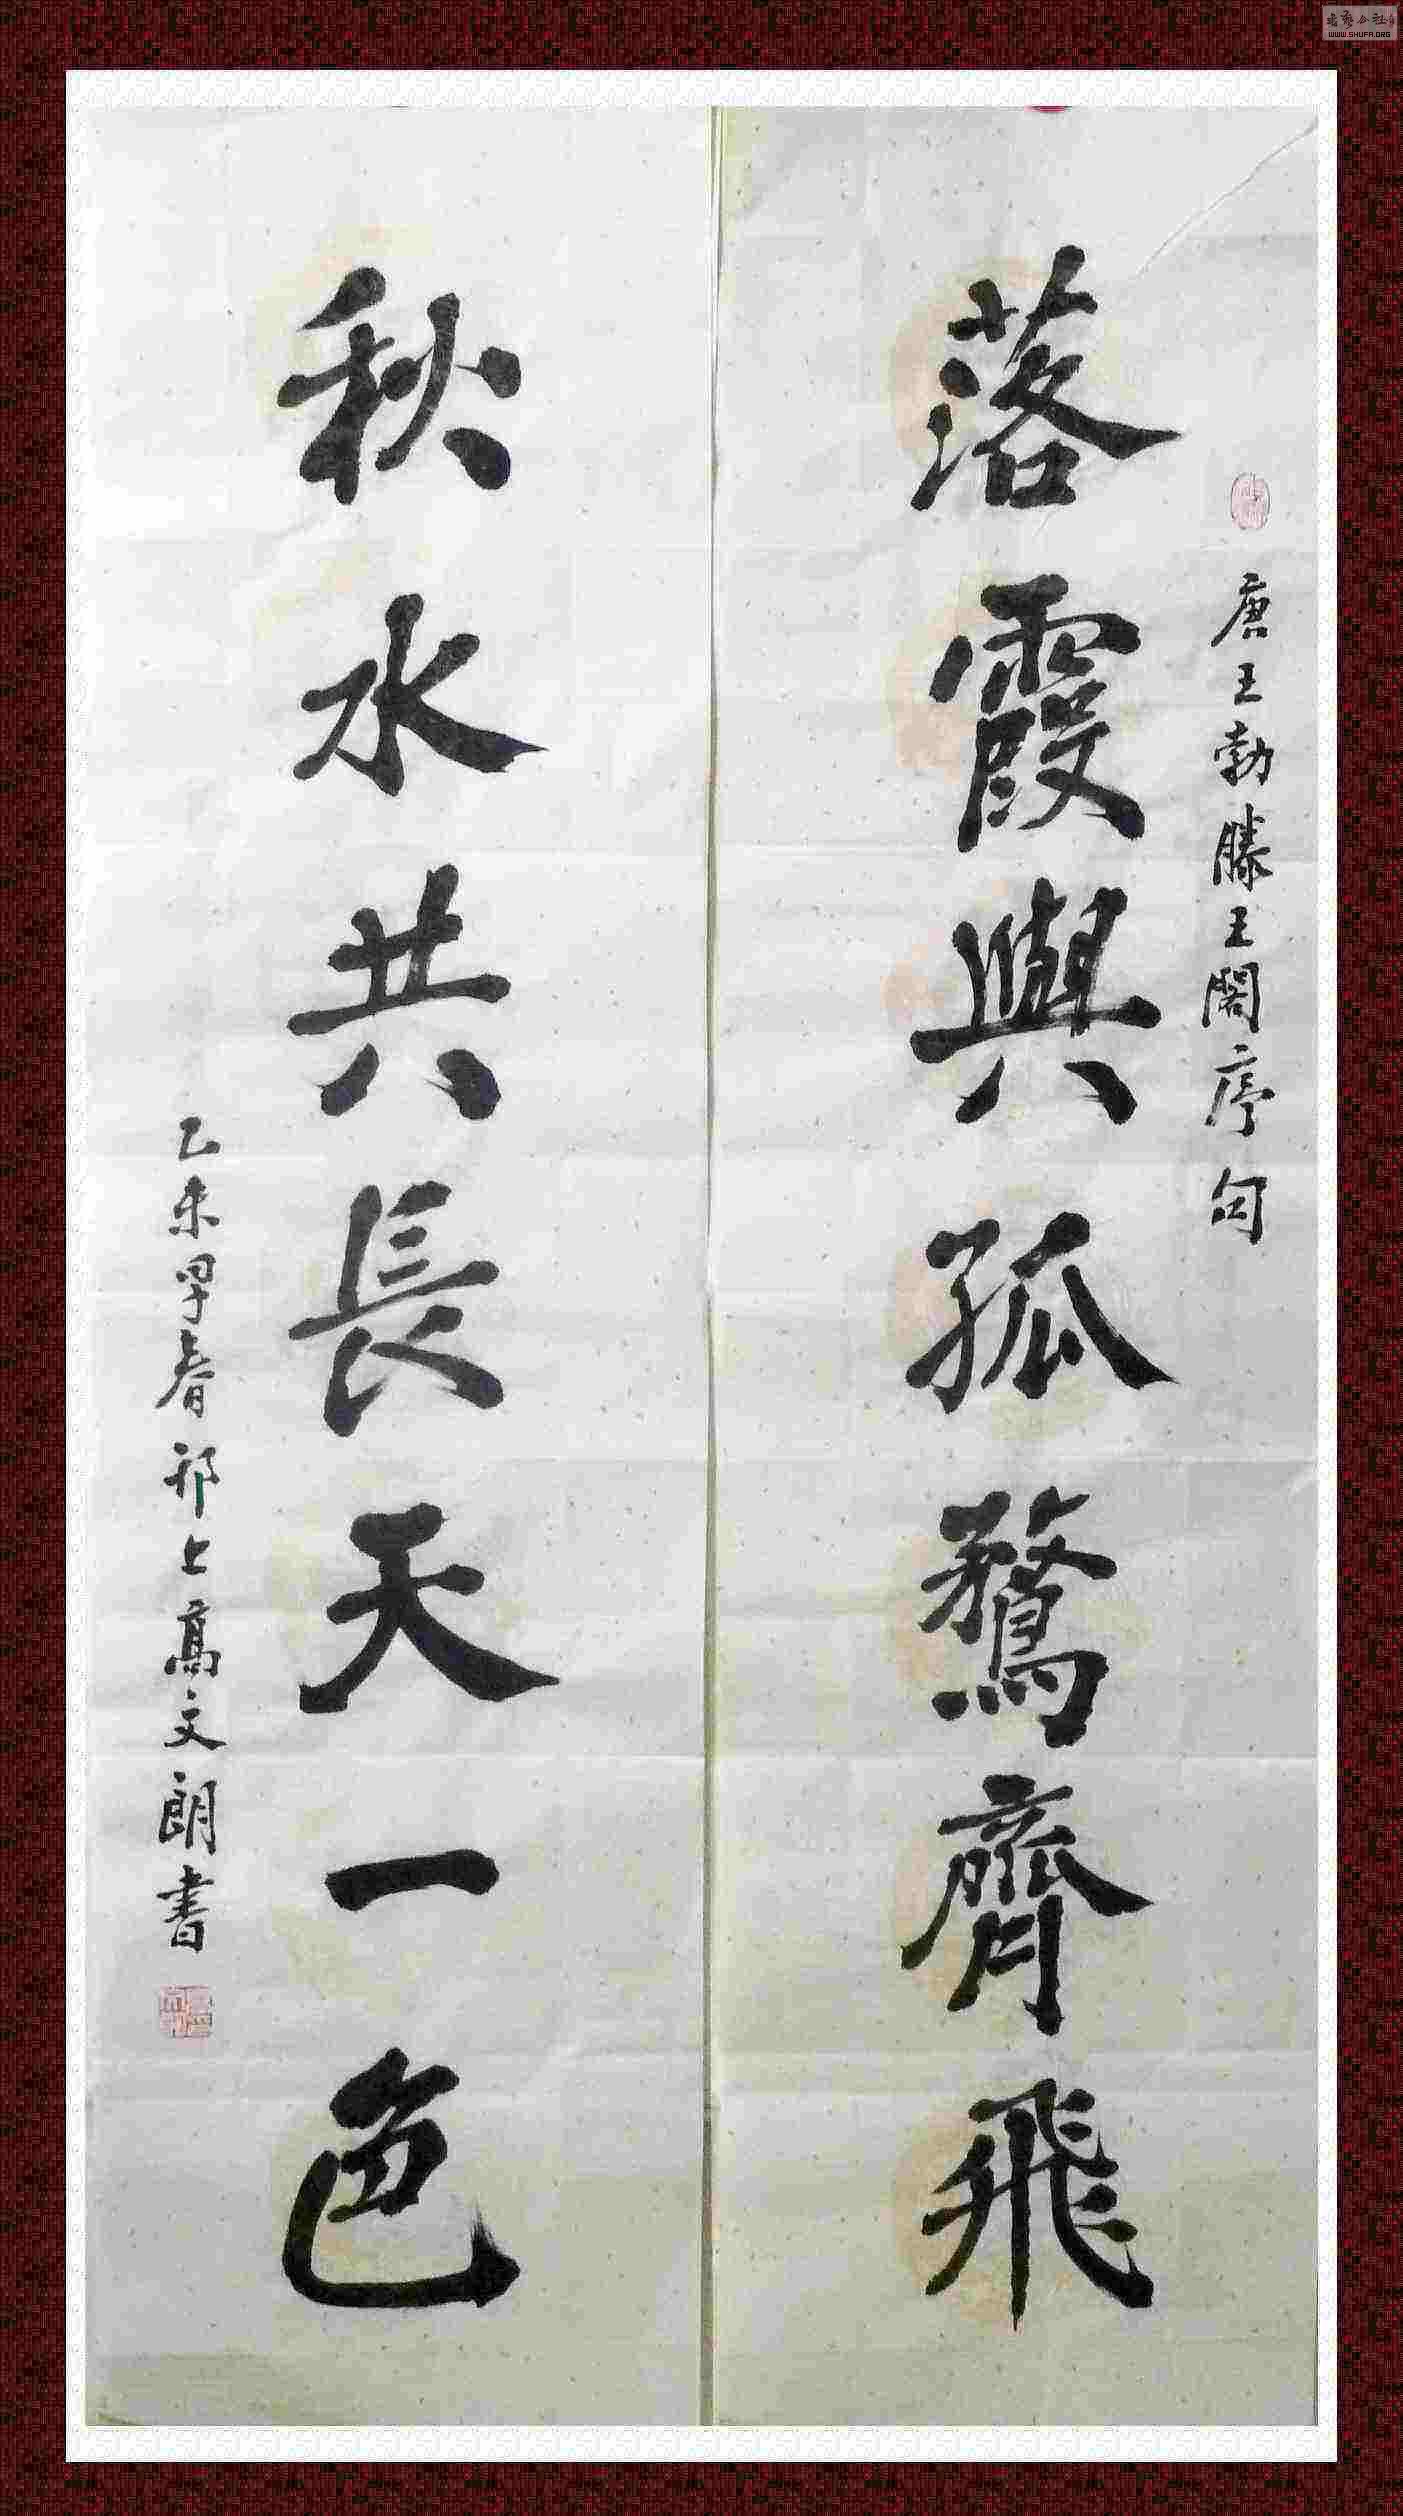 唐王勃滕王閣序句
落霞與孤鶩齊飛
秋水共長天一色
乙未早春祁上高文朗書
WWW.SHUFA.ORG